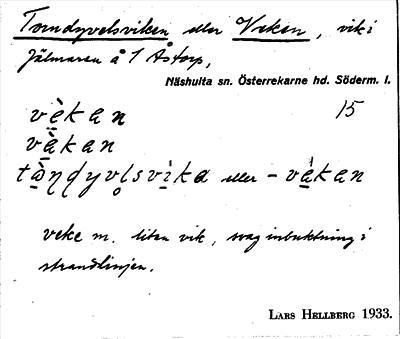 Torndyvelsviken eller Veken, vik i
Hjälmaren å 1 Åstorp,
Näshulta sn. Österrekarne hd. Söderm. l.
15
vè̱kan
vè̱kan
tò̱ṇḍyvl̥svìka eller -vè̱kan
veke m. liten vik, svag inbuktning i
strandlinjen.
Lars Hellberg 1933.